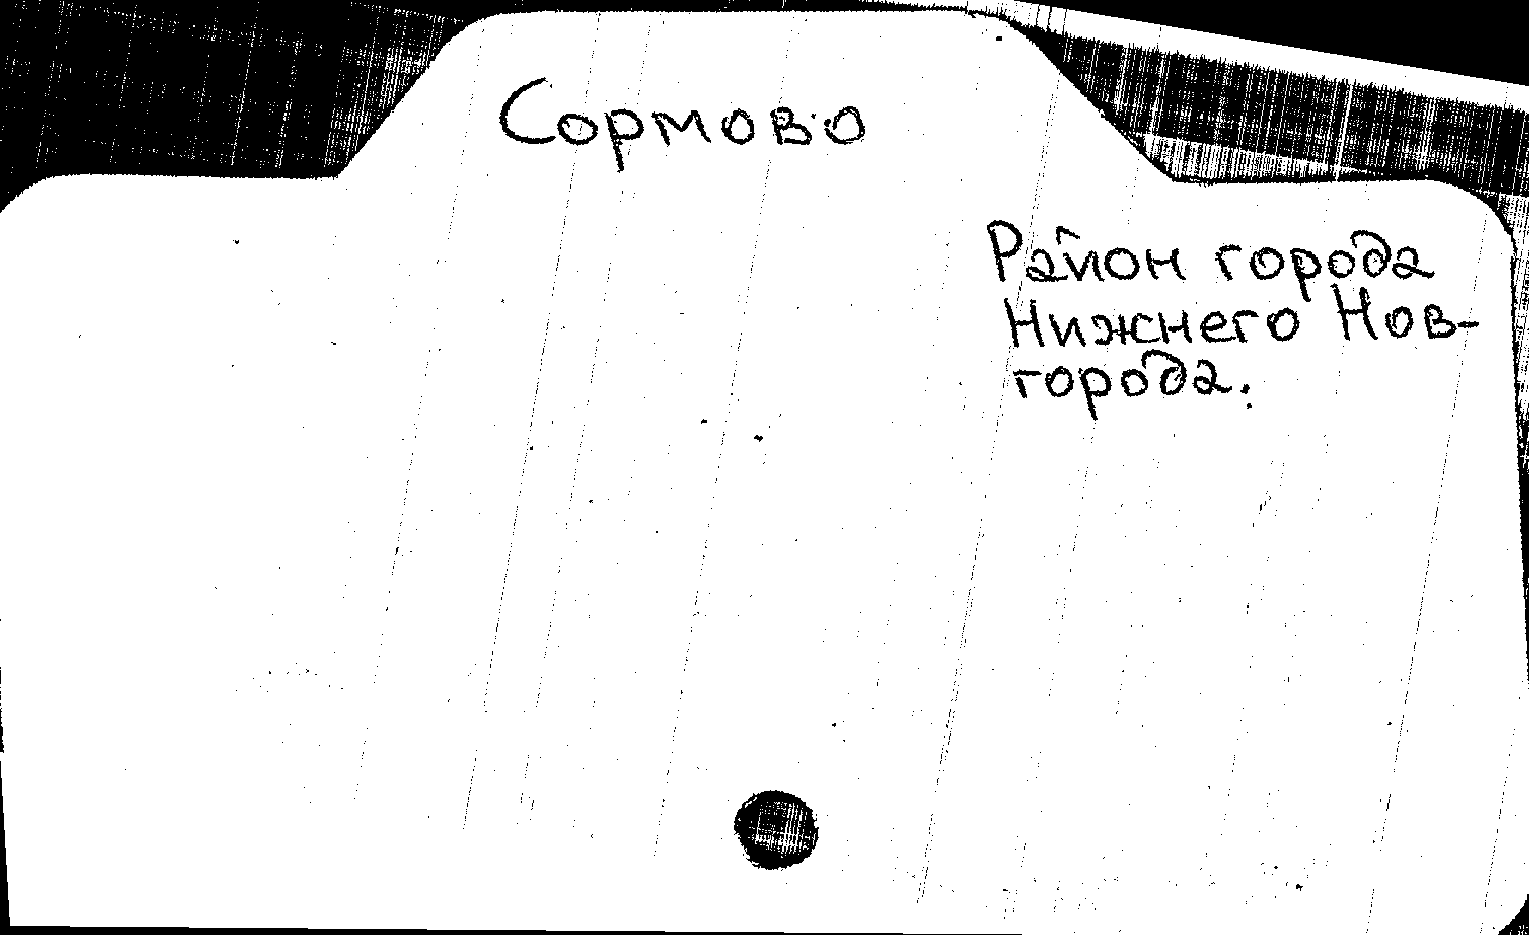 Сормово
Район города
Нижнего Нов-
города.